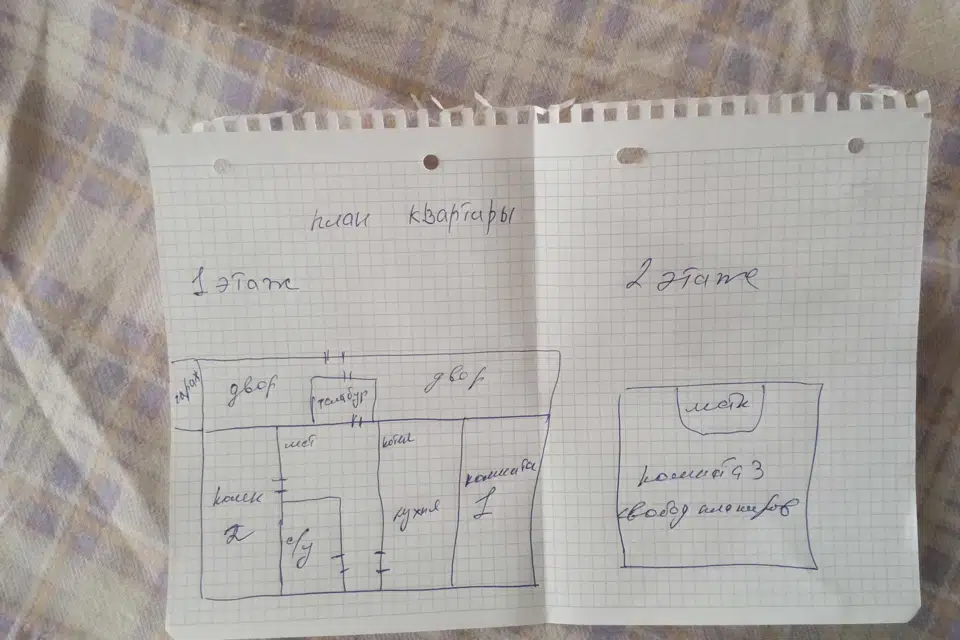 план квартиры
1 этаж
2 этаж
гараж
двор
тамбур
двор
лест
котел
комн
2
с/у
кухня
комната
1
лестн
комната 3
свобод планиров